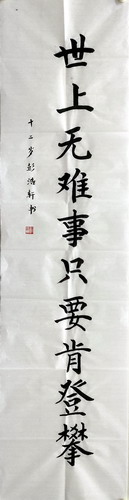 世上无难事只要肯登攀
十二岁彭鸿轩书